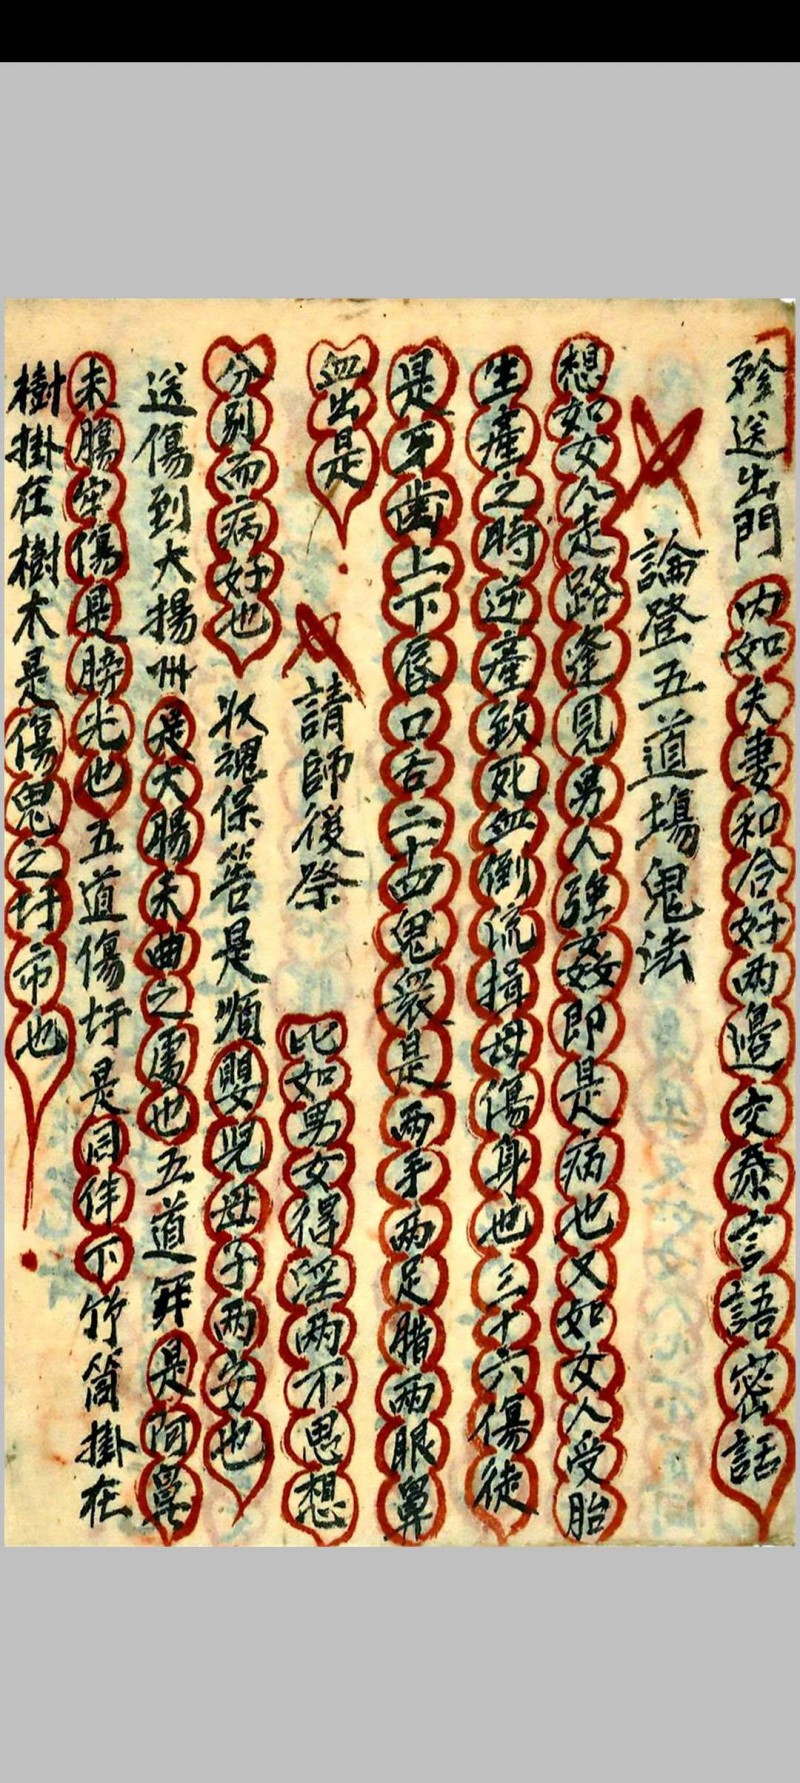 送出門 内如夫妻和合好两邉交泰言語密話
論登五道塲鬼法
想如女人走路逢見男人強姦即是病也又如女人受胎
生產之時逆產致死血倒流損母傷身也三十六傷徒
是牙齒上下唇口舌二十四鬼衆是两手两足腊两眼鼻
血出是 請師後祭 比如男女得淫两不思想
分别而病好也 收魂保答是煩嬰児母子两安也
送傷到大揚州是大腸未曲之處也五道 是阿鼻
未腸牢傷是膀光也五道傷圩是同伴下竹筒掛在
樹掛在樹木是傷鬼之圩市也